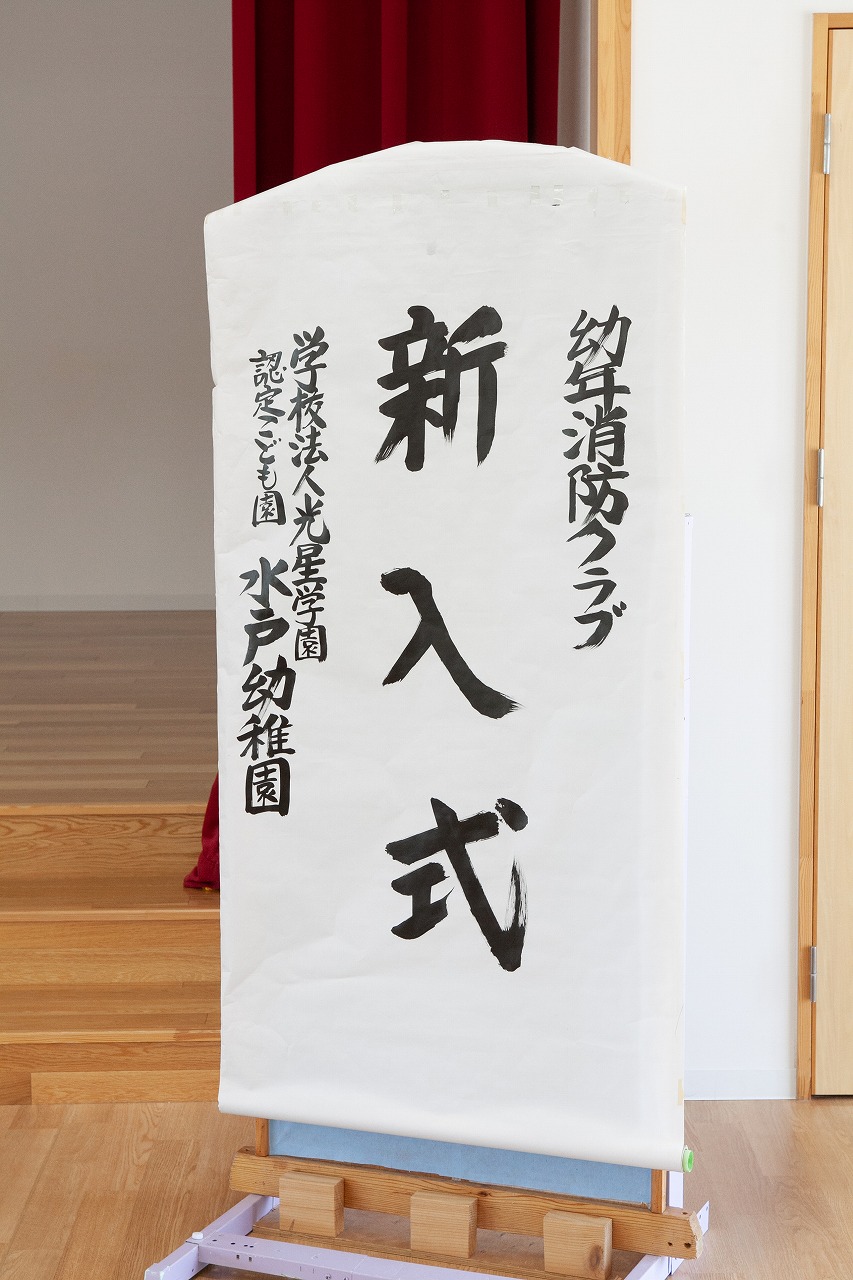 幼年消防クラブ
新入式
学校法人光星学園
認定こども園 水戸幼稚園